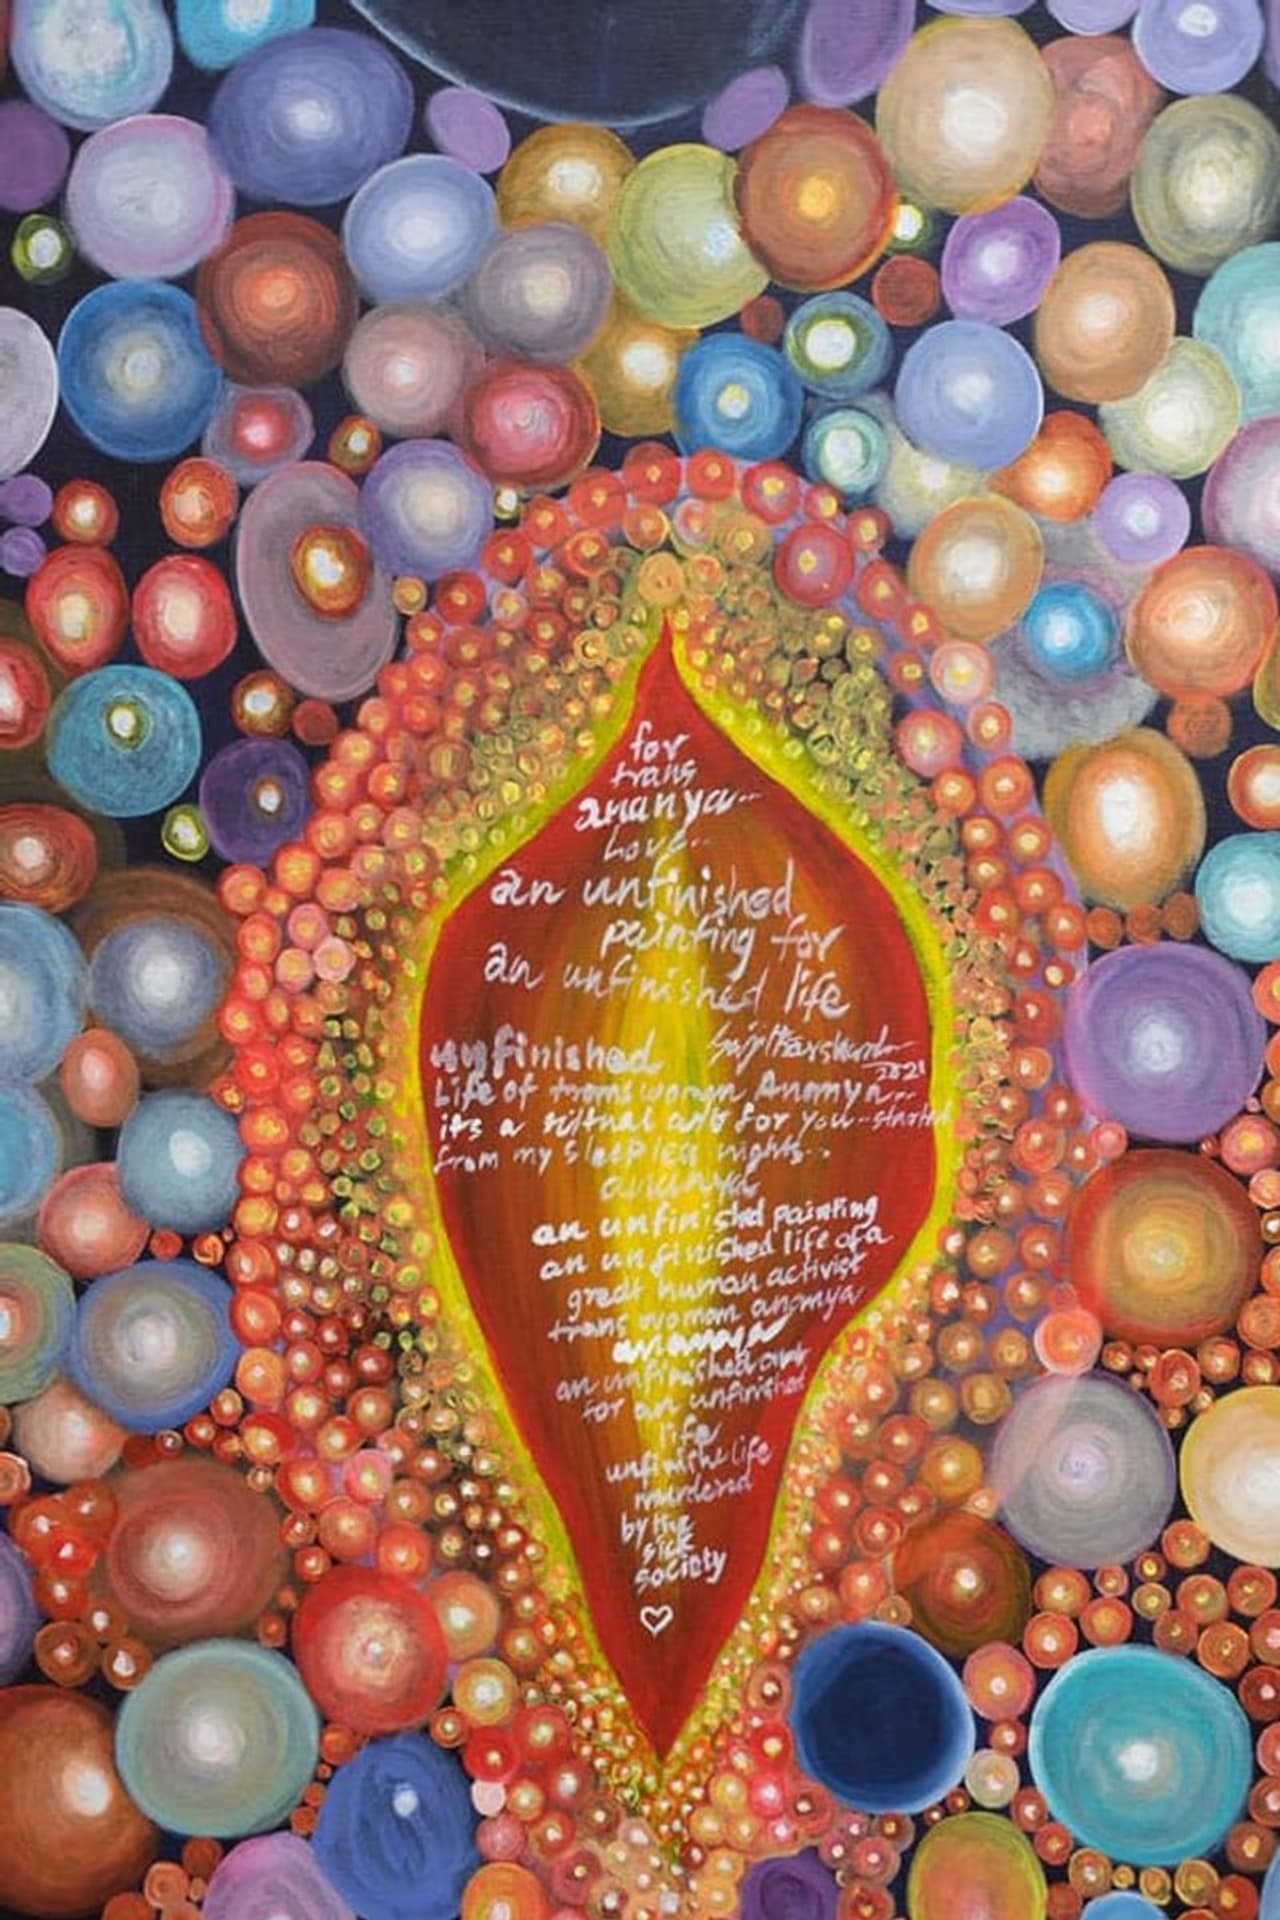 for
trans
ananya..
Love..
an unfinished
painting for
an unfinished life
unfinished
2021
Life of trans woman Ananya..
its a ritual art for you..started
from my sleepless nights..
ananya
an unfinished painting
an unfinished life of a
great human activist
trans woman ananya
ananya
an unfinished art
for an unfinished
life
unfinished life
murdered
by the
sick
society